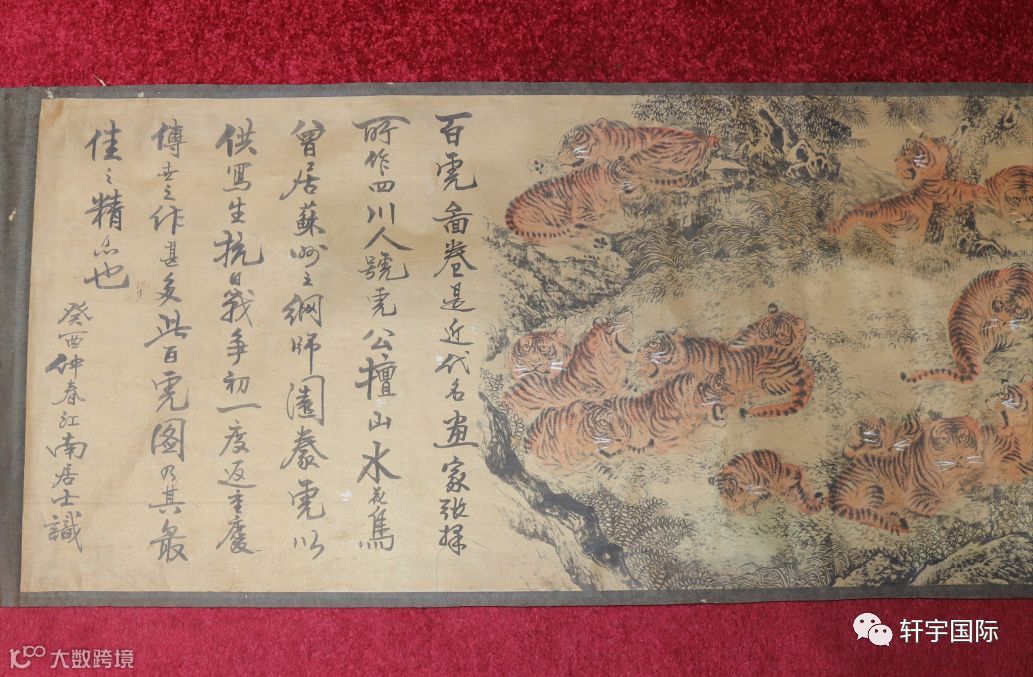 百虎啚卷是近代名画家张擇
所作四川人號虎公擅山水花鳥
曾居蘇州之網師園豢虎以
供寫生抗日戰争初一度返重慶
傳世之作甚多此百虎图乃其最
佳之精品也
癸酉仲春江南居士識
轩宇国际
大数跨境